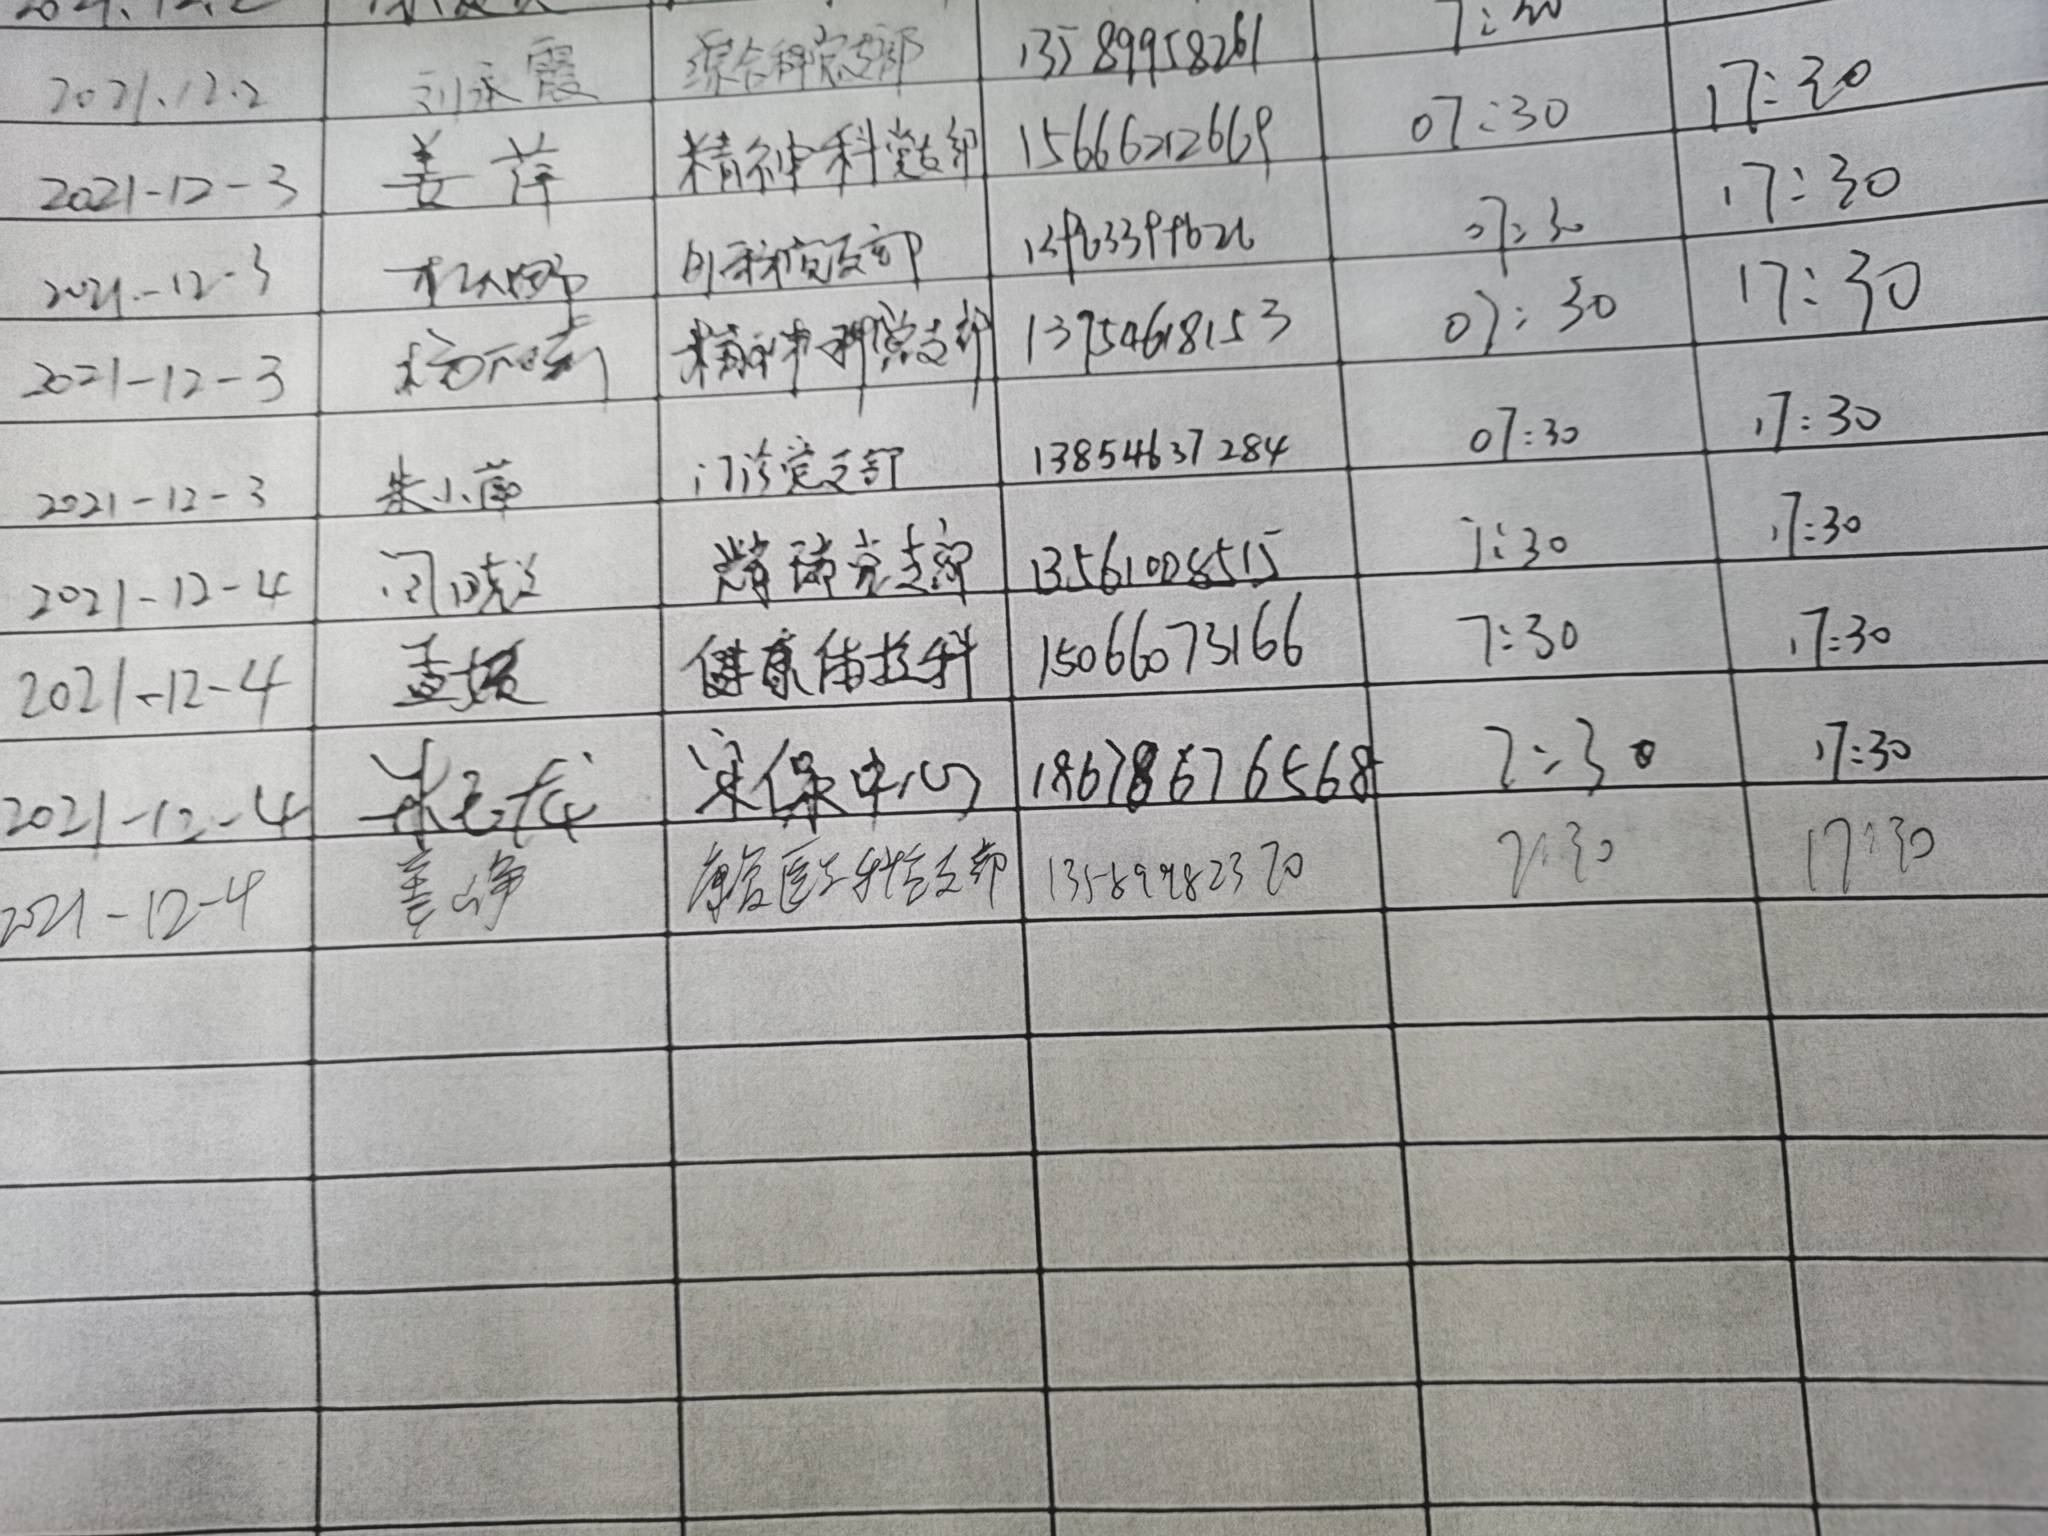 2021.12.2 刘永霞 综合科党支部 13589958261 7:30
2021-12-3 姜萍 精神科党支部 15666212669 07:30 17:30
2021-12-3 党支部 07:30 17:30
2021-12-3 精神科党支部 13954618153 07:30 17:30
2021-12-3 朱小萌 门诊党支部 13854637284 07:30 17:30
2021-12-4 闫晓 党支部 13561008515 7:30 17:30
2021-12-4 孟媛 健康体检科 15066073166 7:30 17:30
2021-12-4 保中心 18678676568 7:30 17:30
2021-12-4 姜峥 支部 13589982370 7:30 17:30